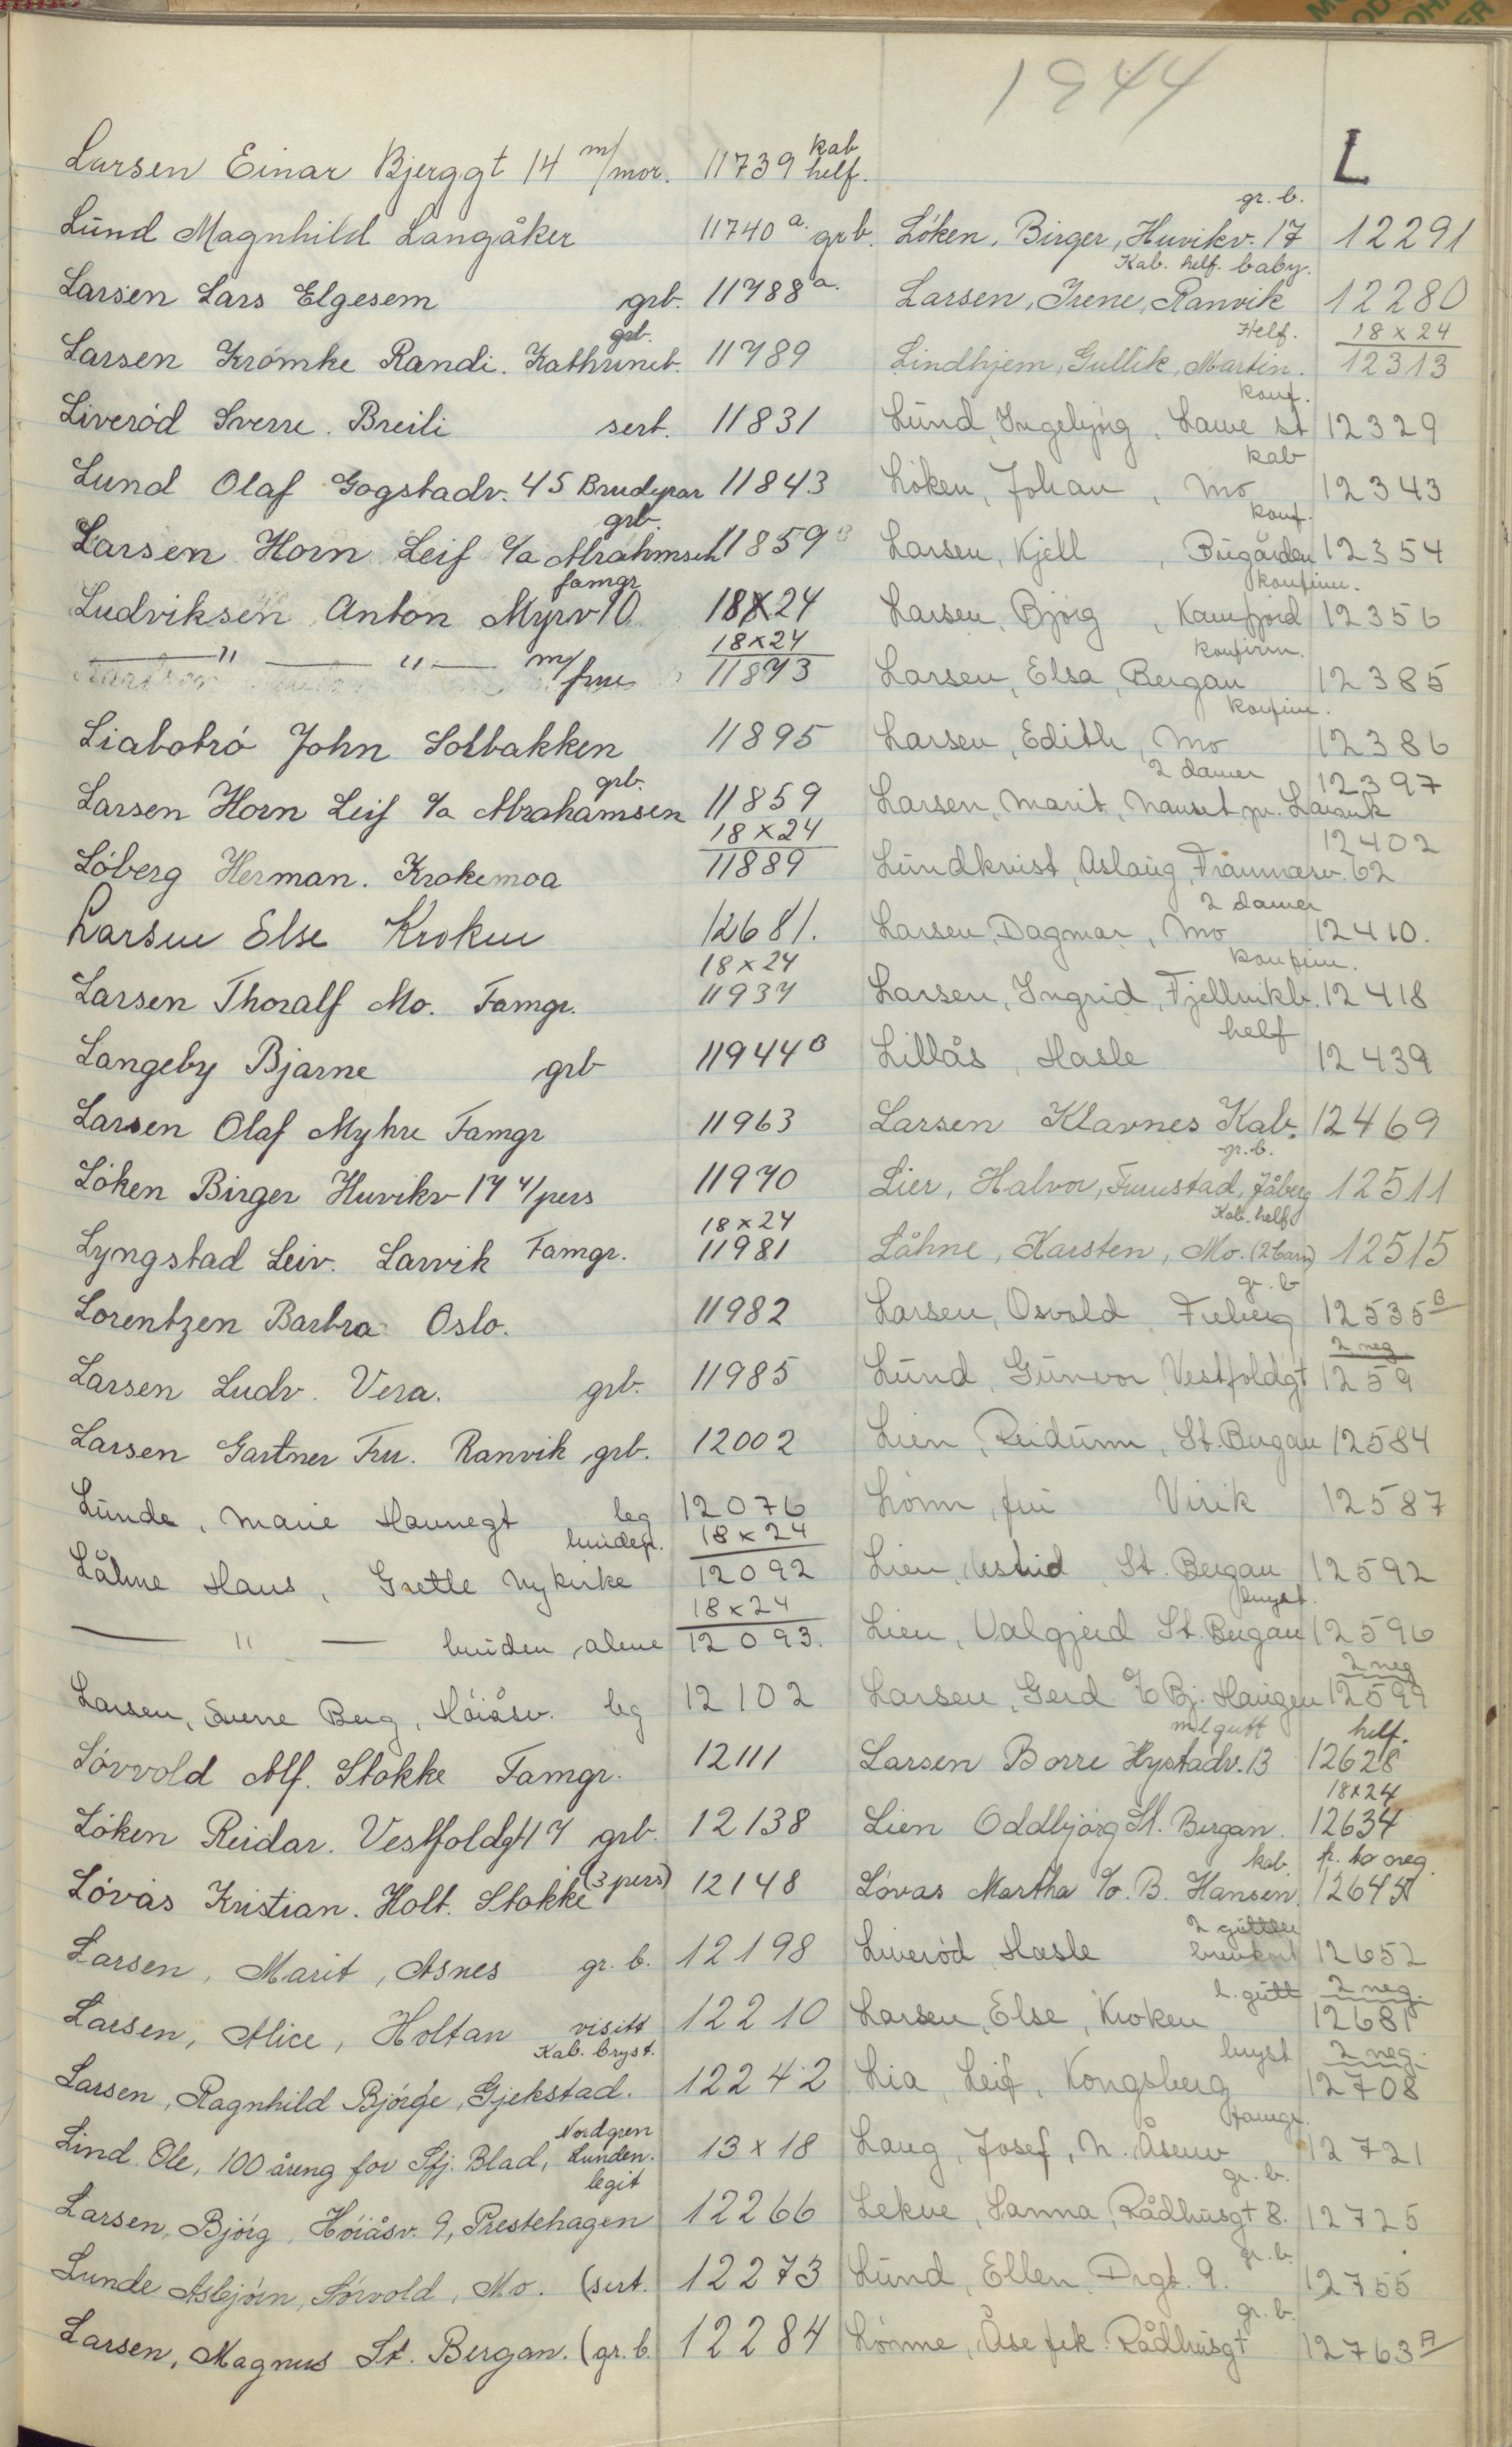 1944
L
Larsen Einar Bjerggt 14 m/mor. 11739 kab helf.
Lund Magnhild Langåker 11740 a. grb.
Larsen Lars Elgesem grb. 11788 a.
Larsen Krömke Randi. Kathrineb. grb. 11789
Liveród Sverre. Breili sert. 11831
Lund Olaf Gogstadv. 45 Brudepar 11843
Larsen Horn Leif c/a Abrahmsen grb. 11859 B
Ludviksen Anton Myrv 10 famgr 18x24
— " — " — m/frue 18x24 11873
Liabotró John Solbakken 11895
Larsen Horn Leif c/a Abrahamsen grb. 11859
Lóberg Herman. Krokemoa 18x24 11889
Larsen Else Kroken 12681.
Larsen Thoralf Mo. Famgr. 18x24 11937
Langeby Bjarne grb 11944 B
Larsen Olaf Myhre Famgr 11963
Lóken Birger Huvikv 17 4/pers 11970
Lyngstad Leiv. Larvik Famgr. 18x24 11981
Lorentzen Barbra Oslo. 11982
Larsen Ludv. Vera. grb. 11985
Larsen Gartner Fru. Ranvik grb. 12002
Lunde, Marie Haunegt leg 12076
Låhne Hans, Grette Nykirke 18x24 12092
— " — alene 18x24 12093.
Larsen, Sverre Berg, Hóiåsv. leg 12102
Lóvvold Alf. Stokke Famgr. 12111
Lóken Reidar. Vestfoldgt 17 grb. 12138
Lóvås Kristian. Holt. Stokke (3 pers) 12148
Larsen, Marit, Asnes gr. b. 12198
Larsen, Alice, Holtan visitt 12210
Larsen, Ragnhild Bjórge, Gjekstad. Kab. bryst. 12242
Lind Ole, 100 åring for Sfj. Blad, Nordgren Lunden. 13x18
Larsen, Bjórg, Hóiåsv. 9, Prestehagen legit 12266
Lunde Asbjórn, Sórvold, Mo. (sert. 12273
Larsen, Magnus St. Bergan. (gr. b. 12284
Lóken, Birger, Huvikv. 17 gr. b. 12291
Larsen, Irene, Ranvik Kab. helf. baby. 12280
Lindhjem, Gullik, Martin. Helf. 18x24 12313
Lund, Ingebjórg, Lauve st konf. 12329
Lóken, Johan, Mo kab 12343
Larsen, Kjell, Bugården konf. 12354
Larsen, Bjórg, Kamfjord konfirm. 12356
Larsen, Elsa, Bergan konfirm. 12385
Larsen, Edith, Mo konfirm. 12386
Larsen, Marit, Nauset pr. Larvik 2 damer 12397
Lundkvist, Aslaug, Framnesv. 62 12402
Larsen, Dagmar, Mo 2 damer 12410.
Larsen, Ingrid, Fjellvikb. konfirm. 12418
Lillås, Hasle helf 12439
Larsen Klavnes Kab. 12469
Lier, Halvor, Furustad, Jåberg gr. b. 12511
Låhne, Karsten, Mo. (2 barn) Kab. helf. 12515
Larsen, Osvald, Freberg gr. b 12535 B
Lund, Gunvor, Vestfoldgt 2 neg 1259
Lien, Reidunn, St. Bergan 12584
Lónn, fru Virik 12587
Lien, Astrid, St. Bergan 12592
Lien, Valgjerd St. Bergan bryst. 12596
Larsen, Gerd c/o Bj. Haugen 2 neg 12599
Larsen Borre Hystadv. 13 m/gutt helf. 12628
Lien Oddbjórg St. Bergan. 18x24 12634
Lóvas Martha c/o. B. Hansen. kab.
Liveród Hasle 2 gutter brevkort 12652
Larsen, Else, Kroken l. gutt 2 neg. 12681
Lia, Leif, Kongsberg bryst 2 neg. 12708
Laug, Josef, N. Åsenv famgr. 12721
Lekve, Sanna, Rådhusgt 8. gr. b. 12725
Lund, Ellen Drgt. 9. gr. b. 12755
Lónne, Åse frk. Rådhusgt gr. b. 12763 A